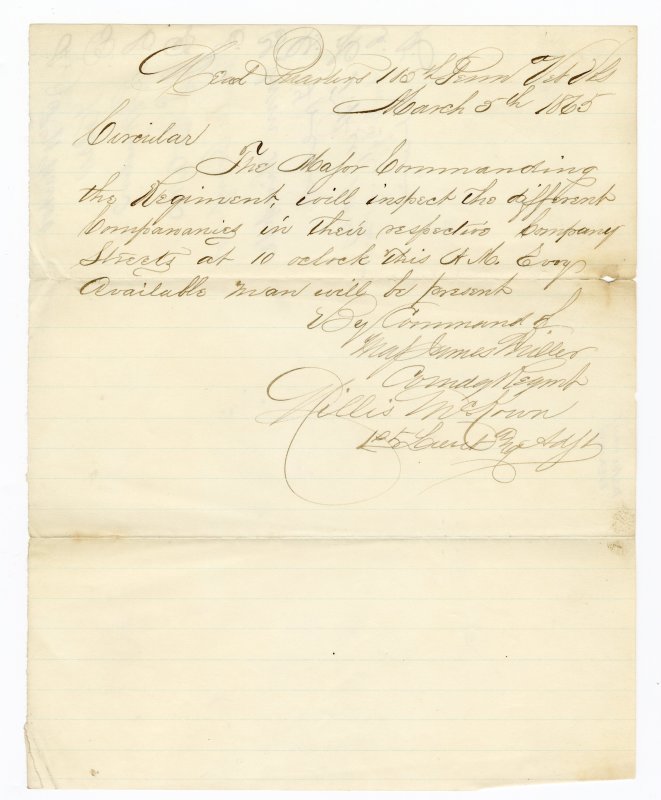 Head Quarters 105th Penn Vet Vols
March 5th 1865
Circular
The Major Commanding
the Regiment, will inspect the different
Compananies in their respective Company
Streets at 10 oclock this A.M. Every
Available man will be present
By Command of
Maj James Miller
Comdg Regmt
Willis McKown
1st Lieut &amp; Adjt